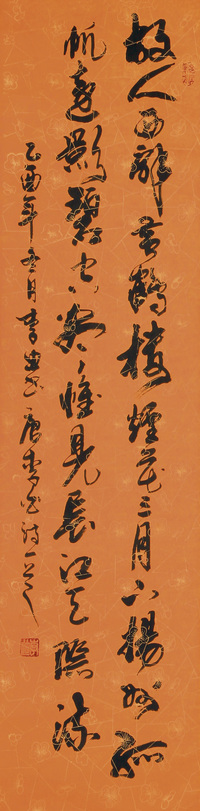 故人西辭黃鶴樓煙花三月下揚州孤
帆遠影碧空盡惟見長江天際流
乙酉年冬月李書唐李白詩一首